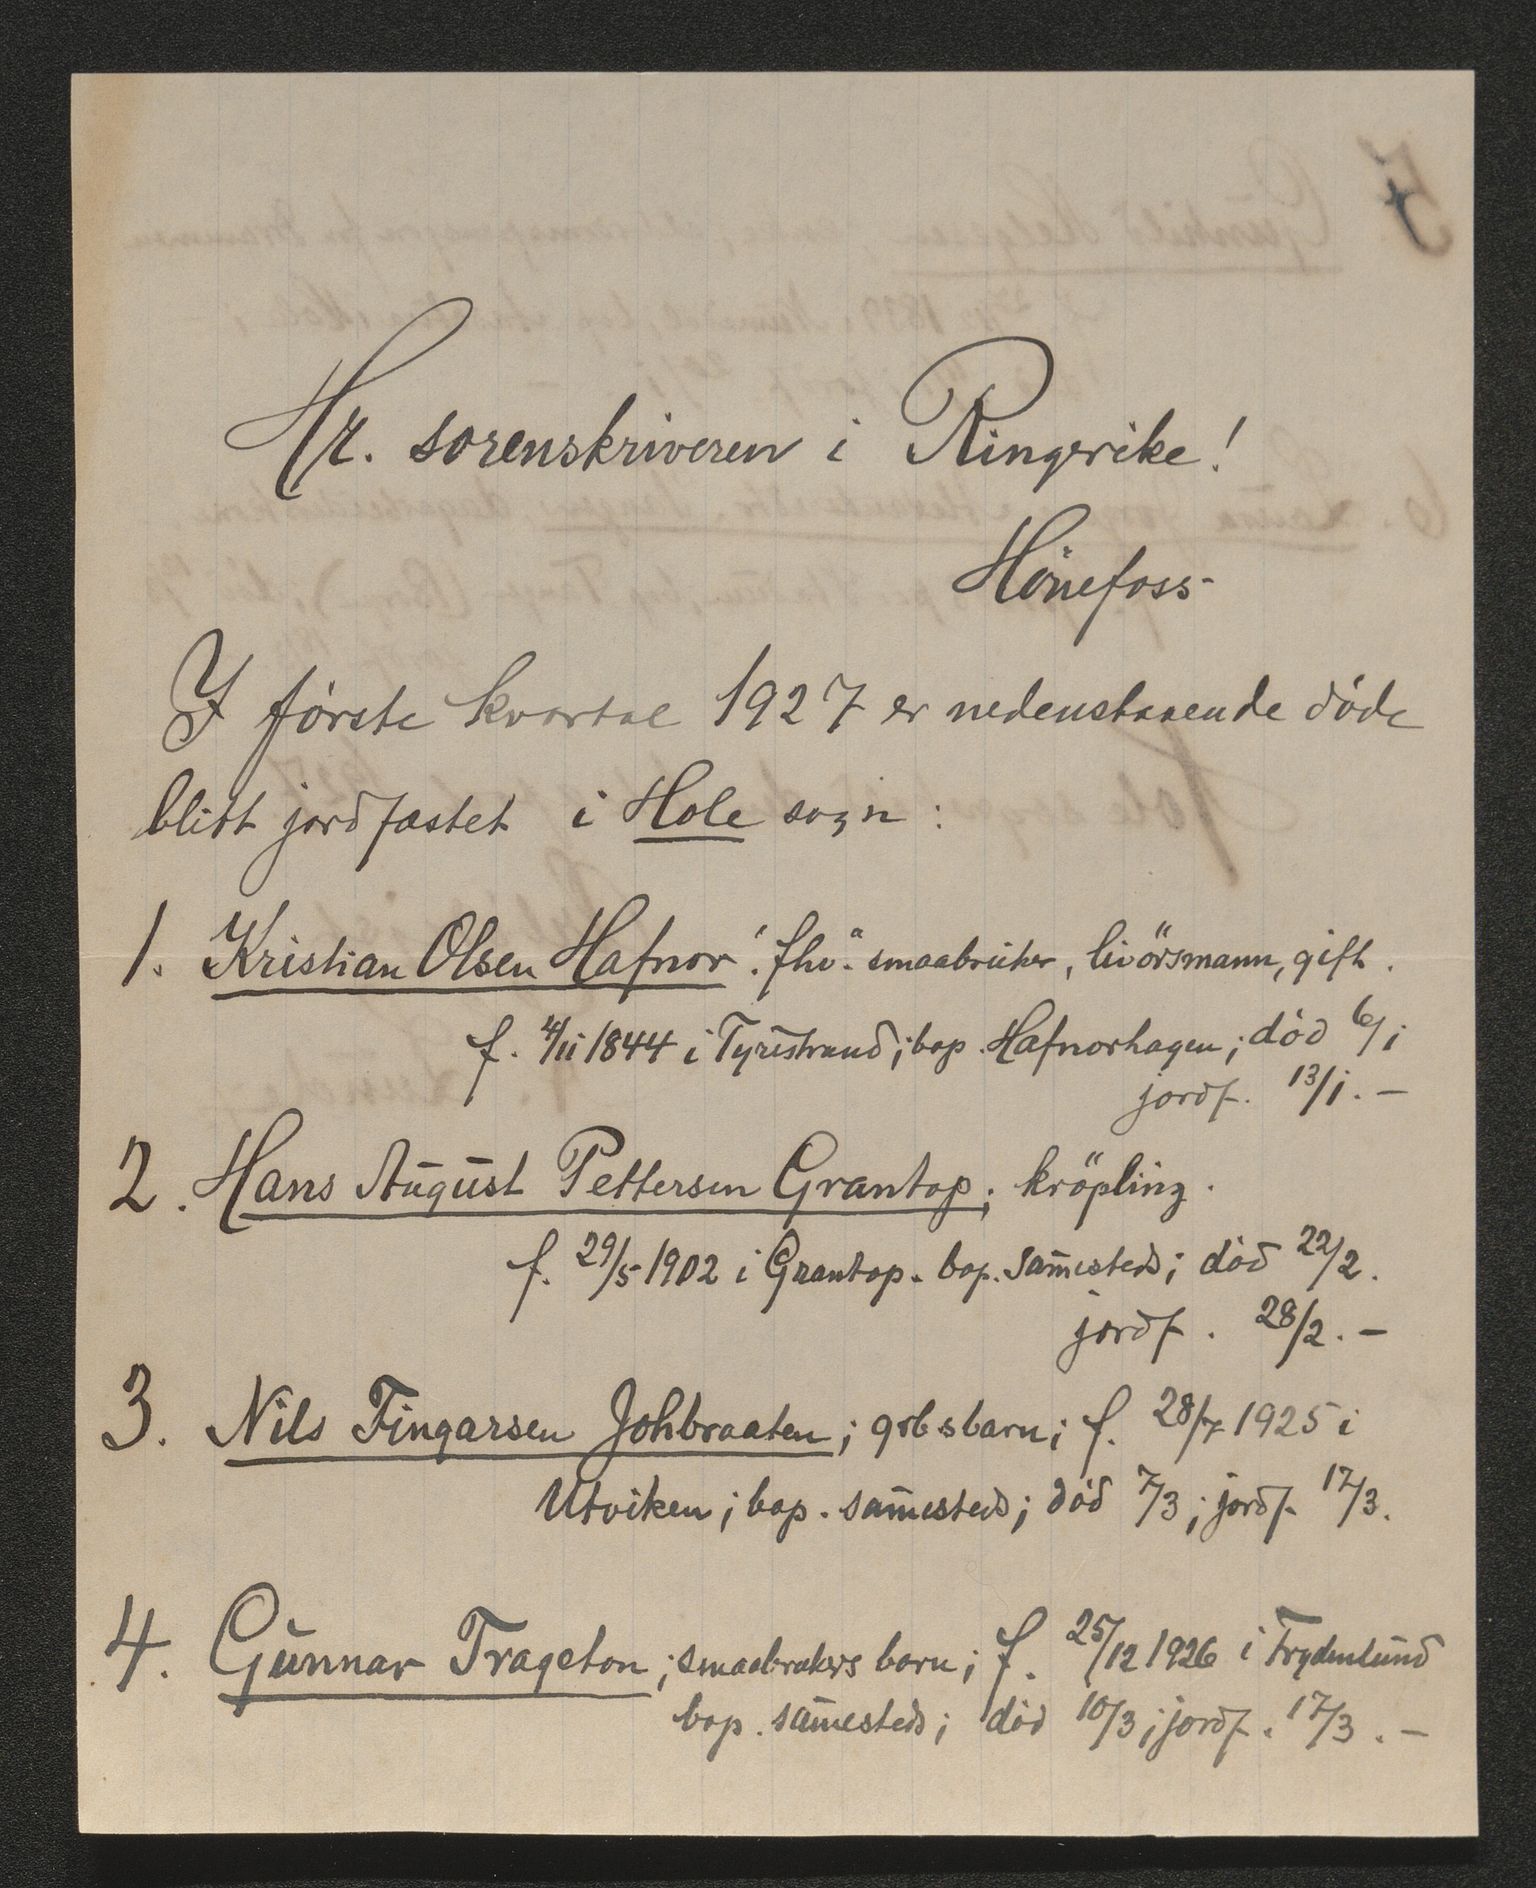 Hr. sorenskriveren i Ringerike!
Hönefoss
I förste kvartal 1927 er nedenstaaende döde
blitt jordfæstet i Hole sogn:
1. Kristian Olsen Hafnor; fhv. smaabruker, livörsmann, gift.
f. 4/11 1844 i Tyristrand; bop. Hafnorhagen; död 6/1
jordf. 13/1. –
2. Hans August Pettersen Grantop; kröpling.
f. 29/5 1902 i Grantop. bop. sam̄esteds; död 22/2.
jordf. 28/2. –
3. Nils Fingarsen Johbraaten; grbsbarn; f. 28/7 1925 i
Utviken; bop. sam̄esteds; död 7/3; jordf. 17/3.
4. Gunnar Trageton; smaabrukers barn; f. 25/12 1926 i Frydenlund
bop. sam̄esteds; död 10/3; jordf. 17/3. –